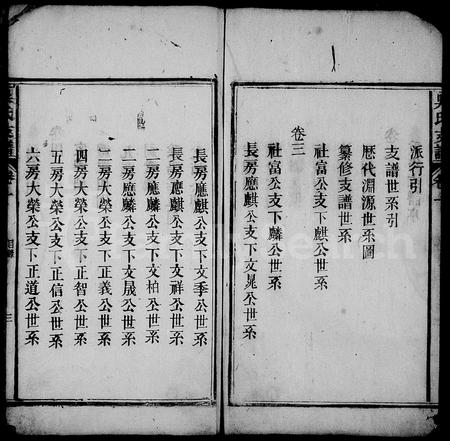 派行引
支譜世系引
歷代淵源世系圖
纂修支譜世系
社富公支下麒公世系
卷三
社富公支下麟公世系
長房應麒公支下文晁公世系
長房應麒公支下文季公世系
長房應麒公支下文祥公世系
二房應麟公支下文柏公世系
二房應麟公支下文晟公世系
二房大榮公支下正義公世系
四房大榮公支下正智公世系
五房大榮公支下正信公世系
六房大榮公支下正道公世系
三